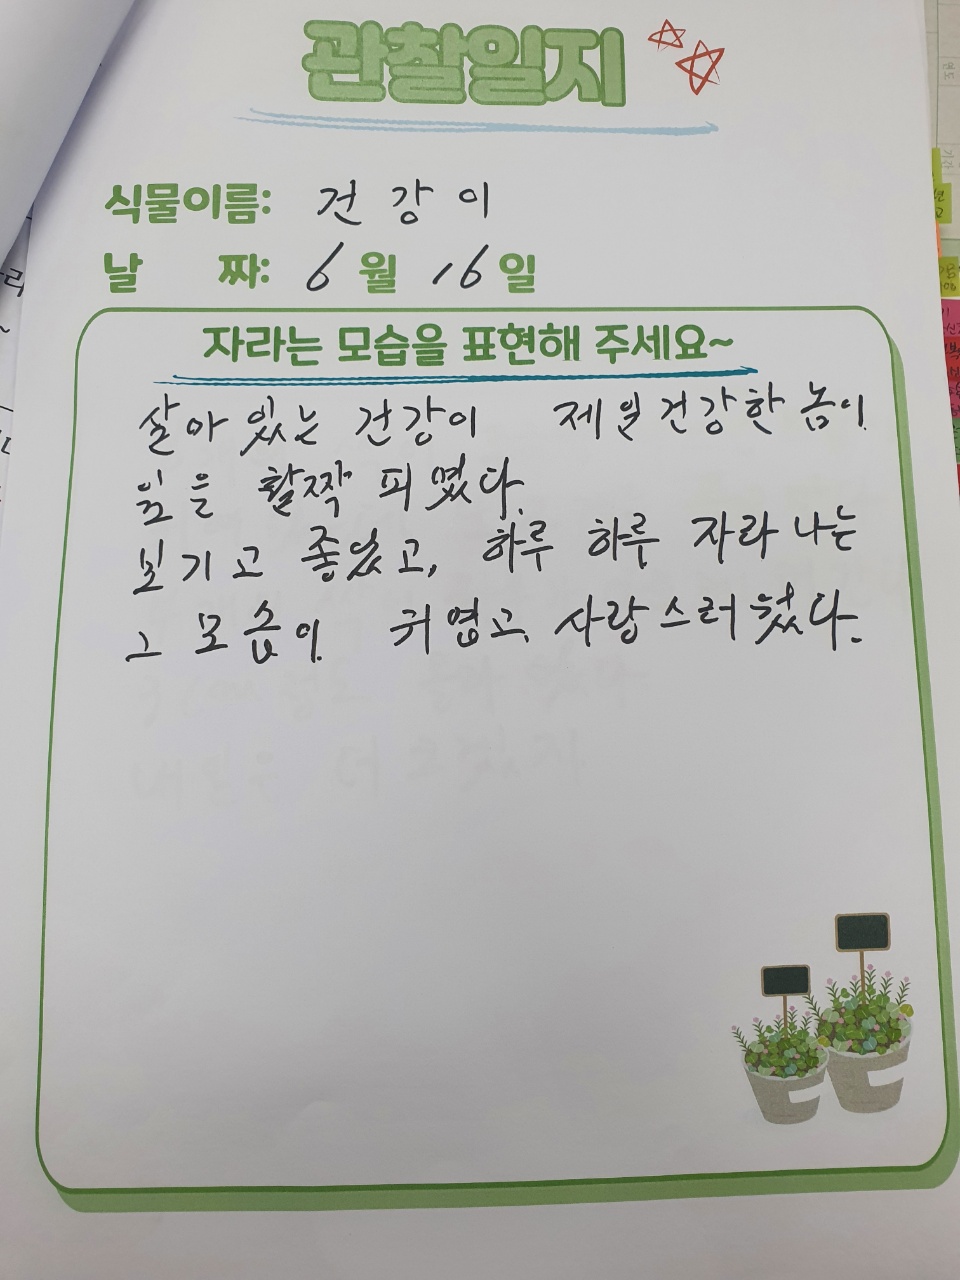 관찰일지
식물이름: 건강이
날 짜: 6월 16일
자라는 모습을 표현해 주세요~
살아있는 건강이 제일건강한 놈이
잎을 활짝 피였다.
보기고 좋았고, 하루 하루 자라나는
그 모습이 귀엽고 사랑스러웠다.